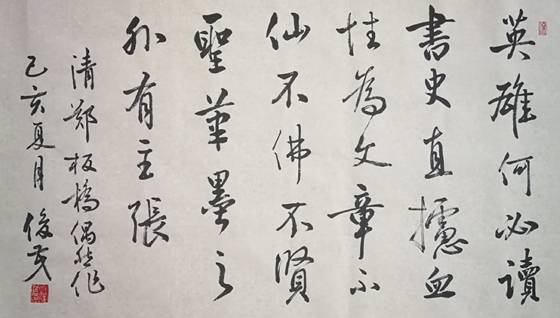 英雄何必讀
書史直攄血
性為文章不
仙不佛不賢
聖筆墨之
外有主張
清郑板橋偶然作
己亥夏月 俊